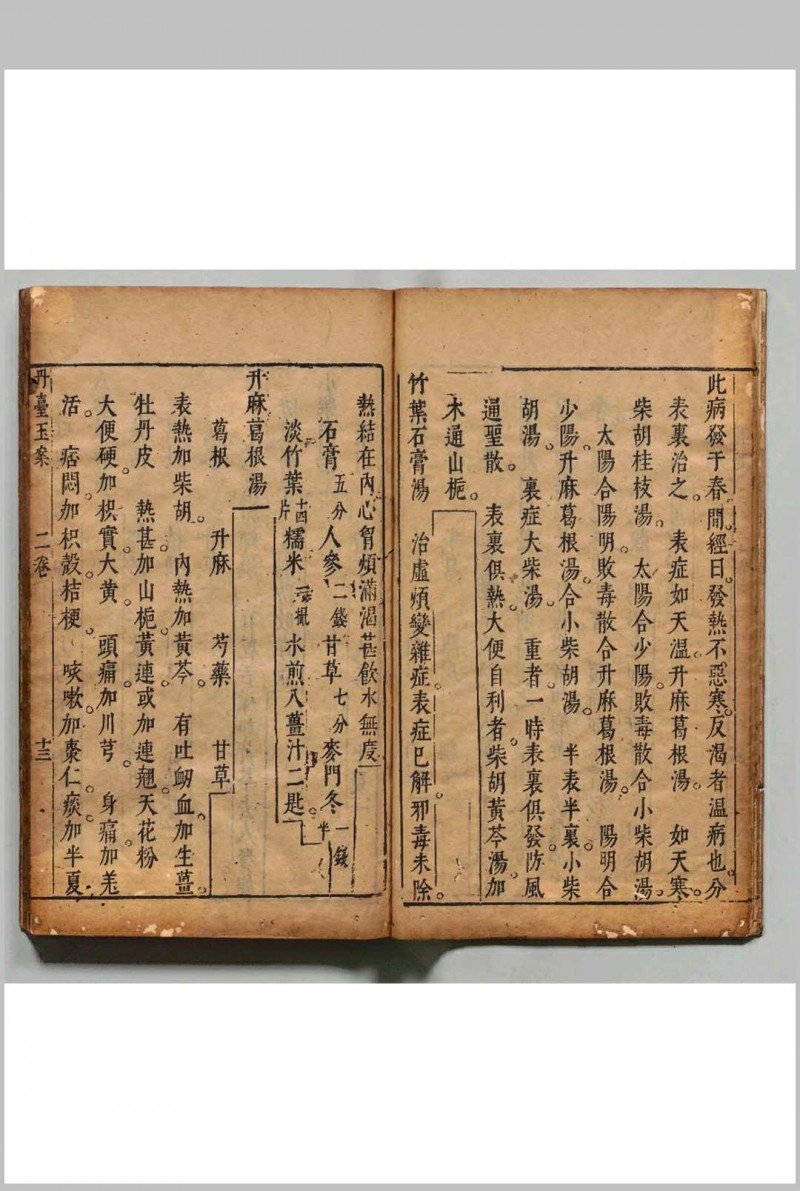 此病發于春間經日發熱不惡寒反渴者温病也分
表裏治之 表症如天温升麻葛根湯 如天寒
柴胡桂枝湯 太陽合少陽敗毒散合小柴胡湯
太陽合陽明敗毒散合升麻葛根湯 陽明合
少陽升麻葛根湯合小柴胡湯 半表半裏小柴
胡湯 裏症大柴湯 重者一時表裏俱發防風
通聖散 表裏俱熱大便自利者柴胡黃芩湯加
木通山梔
竹葉石膏湯 治虛煩變雜症表症已解邪毒未除
熱結在內心胷煩滿渴甚飲水無度
石膏五分 人參二錢 甘草七分 麥門冬一錢半
淡竹葉十四片 糯米一撮 水煎入薑汁二匙
升麻葛根湯
葛根 升麻 芍藥 甘草
表熱加柴胡 內熱加黃芩 有吐衂血加生薑
牡丹皮 熱甚加山梔黃連或加連翹天花粉
大便硬加枳實大黃 頭痛加川芎 身痛加羌
活 痞悶加枳殼桔梗 咳嗽加棗仁 痰加半夏
丹臺玉案 二卷 十三